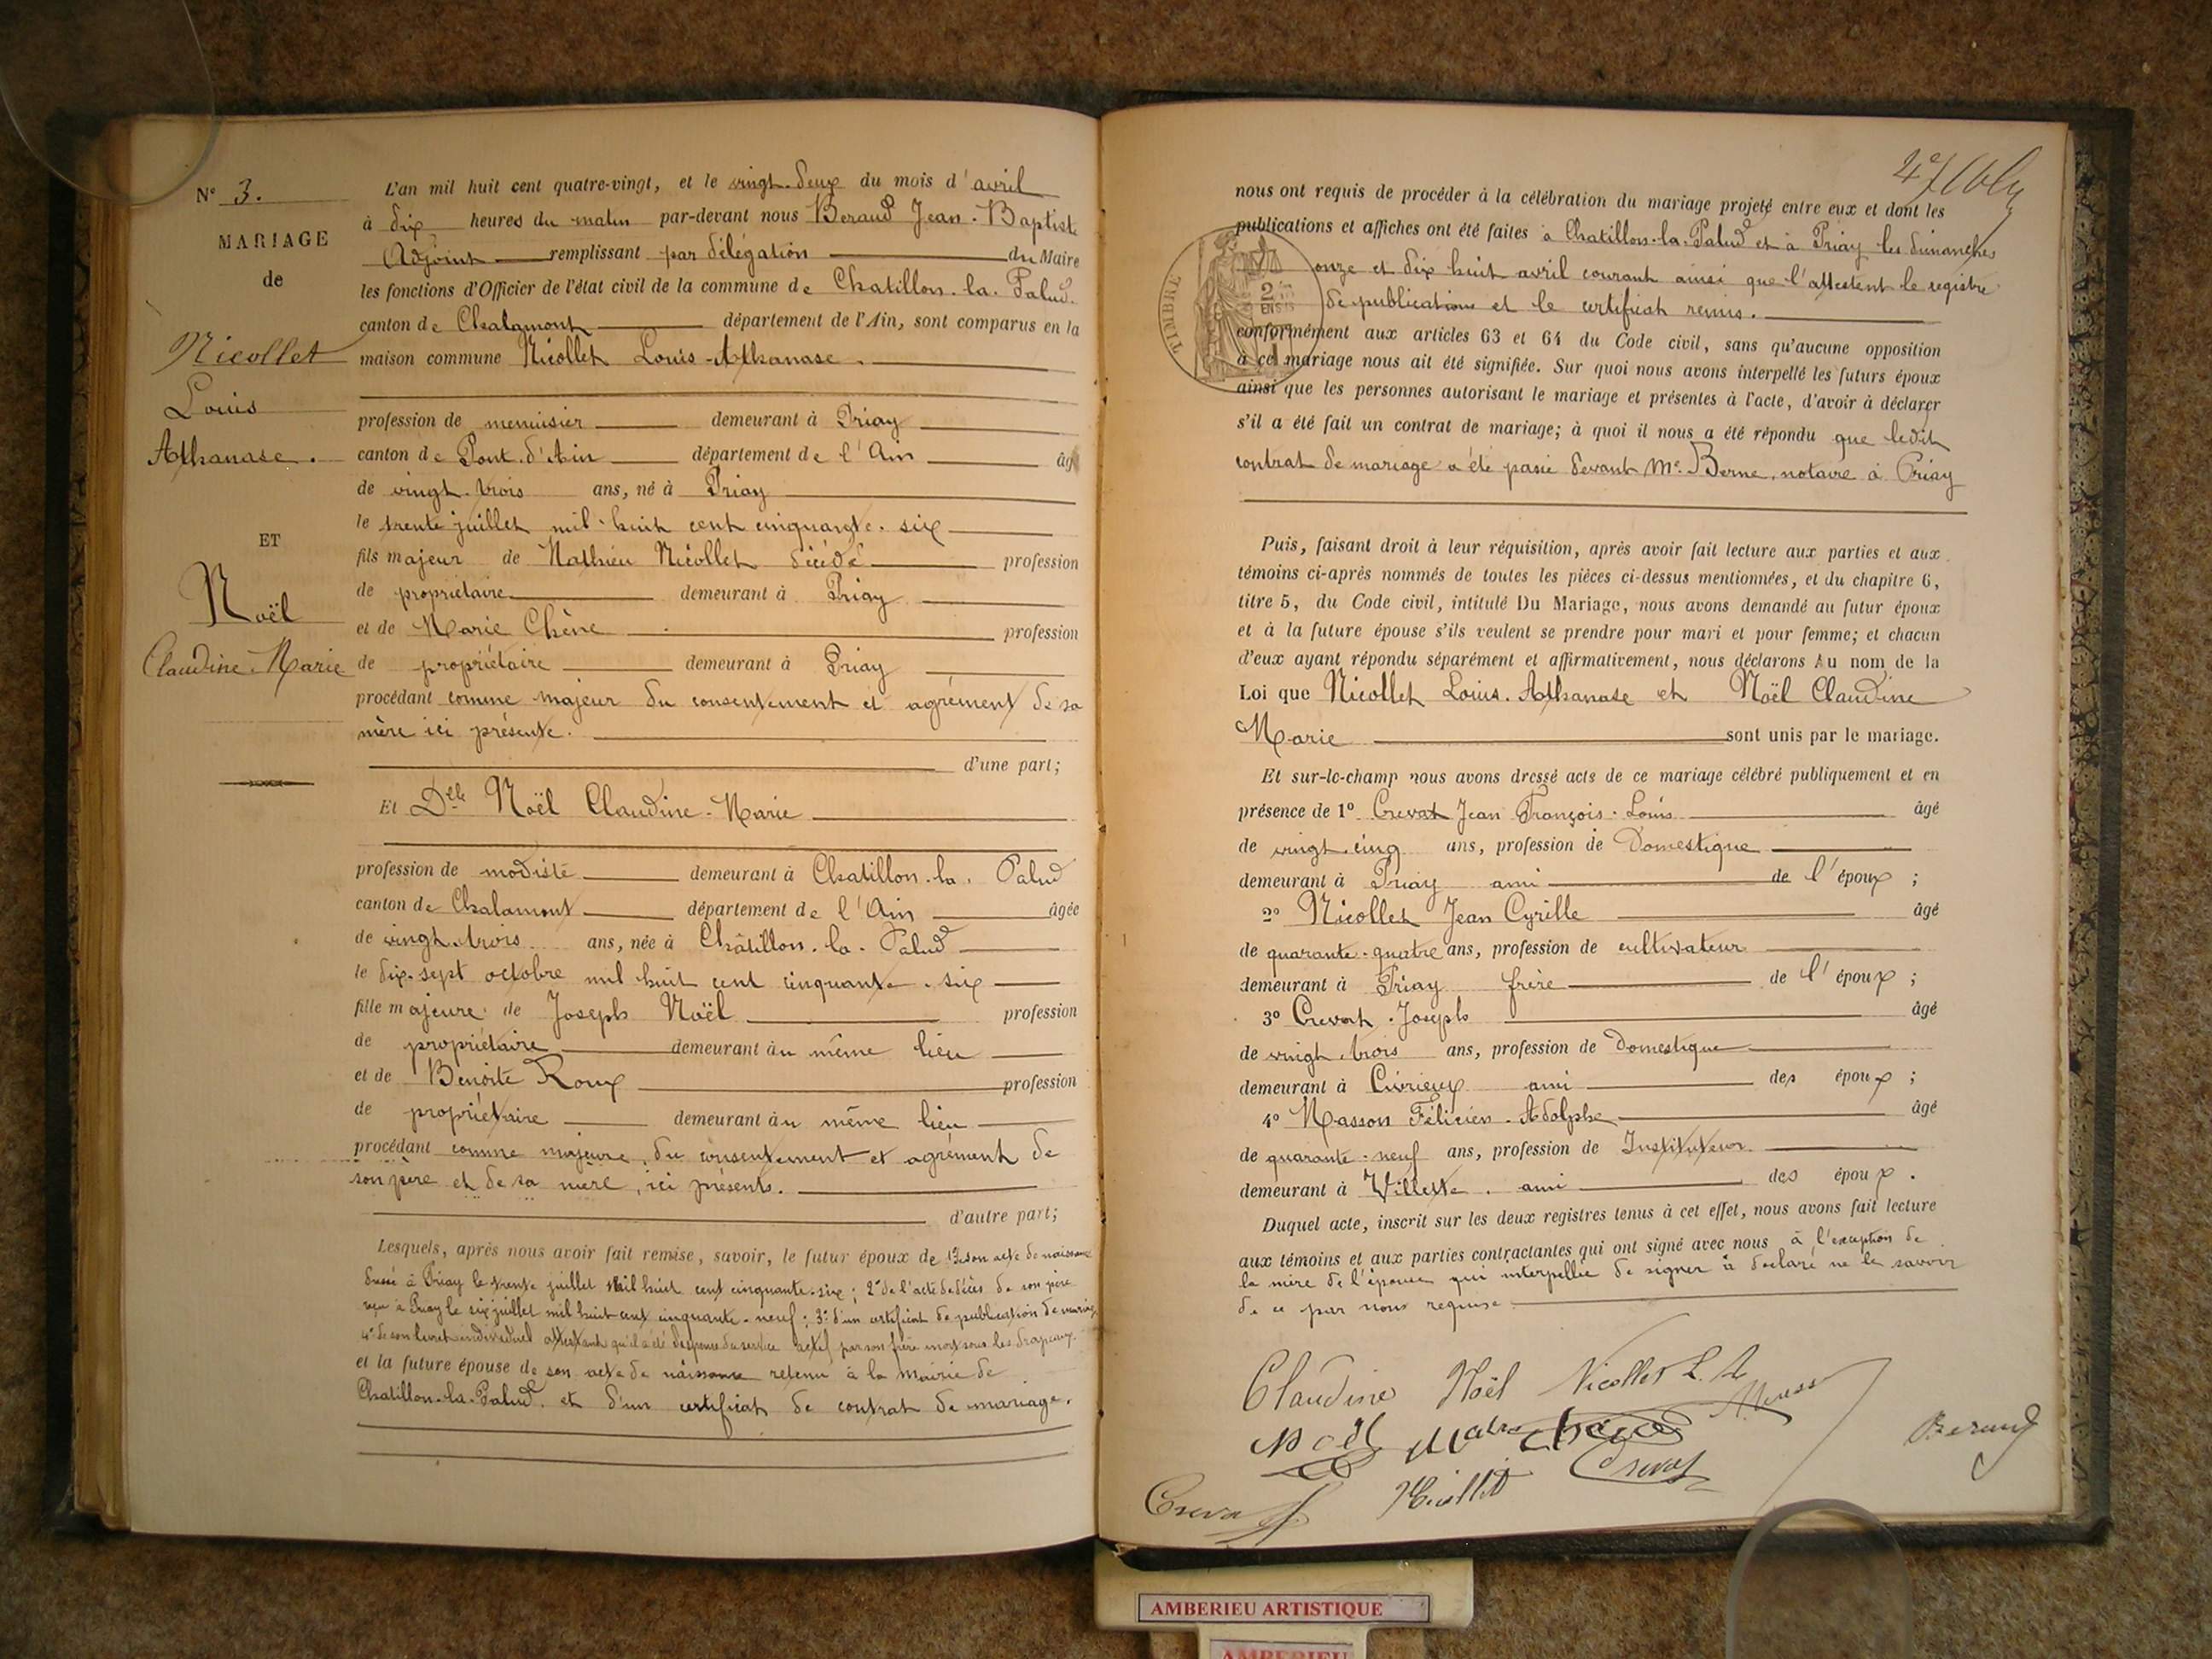 N° 3.
MARIAGE
de
Nicollet
Louis
Athanase.
ET
Noël
Claudine-Marie
L'an mil huit cent quatre-vingt, et le vingt-deux du mois d'avril
à dix heures du matin par-devant nous Beraud Jean-Baptiste
Adjoint remplissant par délégation du Maire
les fonctions d'Officier de l'état civil de la commune de Chatillon-la-Palud.
canton de Chalamont département de l'Ain, sont comparus en la
maison commune Nicollet Louis-Athanase.
profession de menuisier demeurant à Priay
canton de Pont-d'Ain département de l'Ain âgé
de vingt-trois ans, né à Priay
le trente juillet mil-huit cent cinquante-six
fils majeur de Mathieu Nicollet décédé profession
de propriétaire demeurant à Priay
et de Marie Chêne profession
de propriétaire demeurant à Priay
procédant comme majeur du consentement et agrément de sa
mère ici présente.
d'une part;
Et Delle Noël Claudine-Marie
profession de modiste demeurant à Chatillon-la-Palud
canton de Chalamont département de l'Ain âgée
de vingt-trois ans, née à Châtillon-la-Palud
le dix-sept octobre mil huit cent cinquante-six
fille majeure de Joseph Noël profession
de propriétaire demeurant au même lieu
et de Benoite Roux profession
de propriétaire demeurant au même lieu
procédant comme majeure, du consentement et agrément de
son père et de sa mère, ici présents.
d'autre part;
Lesquels, après nous avoir fait remise, savoir, le futur époux de 1° son acte de naissance
dressé à Priay le trente juillet mil huit cent cinquante-six; 2° de l'acte de décès de son père
reçu à Priay le six juillet mil huit cent cinquante-neuf; 3° d'un certificat de publication de mariage
4° de son livret individuel attestant qu'il a été dispensé du service actif par son frère mort sous les drapeaux.
et la future épouse de son acte de naissance retenu à la mairie de
Chatillon-la-Palud, et d'un certificat de contrat de mariage.
nous ont requis de procéder à la célébration du mariage projeté entre eux et dont les
publications et affiches ont été faites à Chatillon-la-Palud et à Priay les dimanches
onze et dix huit avril courant ainsi que l'attestent le registre
de publications et le certificat remis.
TIMBRE
conformément aux articles 63 et 64 du Code civil, sans qu'aucune opposition
à ce mariage nous ait été signifiée. Sur quoi nous avons interpellé les futurs époux
ainsi que les personnes autorisant le mariage et présentes à l'acte, d'avoir à déclarer
s'il a été fait un contrat de mariage; à quoi il nous a été répondu que ledit
contrat de mariage a été passé devant Me Berne, notaire à Priay
Puis, faisant droit à leur réquisition, après avoir fait lecture aux parties et aux
témoins ci-après nommés de toutes les pièces ci-dessus mentionnées, et du chapitre 6,
titre 5, du Code civil, intitulé Du Mariage, nous avons demandé au futur époux
et à la future épouse s'ils veulent se prendre pour mari et pour femme; et chacun
d'eux ayant répondu séparément et affirmativement, nous déclarons Au nom de la
Loi que Nicollet Louis-Athanase et Noël Claudine
Marie sont unis par le mariage.
Et sur-le-champ nous avons dressé acte de ce mariage célébré publiquement et en
présence de 1° Crevat Jean François-Louis âgé
de vingt-cinq ans, profession de Domestique
demeurant à Priay ami de l'époux;
2° Nicollet Jean Cyrille âgé
de quarante-quatre ans, profession de cultivateur
demeurant à Priay frère de l'époux;
3° Crevat Joseph âgé
de vingt-trois ans, profession de Domestique
demeurant à Civrieux ami des époux;
4° Masson Félicien-Adolphe âgé
de quarante-neuf ans, profession de Instituteur
demeurant à Villette. ami des époux.
Duquel acte, inscrit sur les deux registres tenus à cet effet, nous avons fait lecture
aux témoins et aux parties contractantes qui ont signé avec nous à l'exception de
la mère de l'épouse qui interpellée de signer a declaré ne le savoir
de ce par nous requise
Claudine Noël Nicollet L. A.
Noël Marie Chêne
Beraud
Crevat Nicollet Crevat
AMBERIEU ARTISTIQUE
AMBERIEU